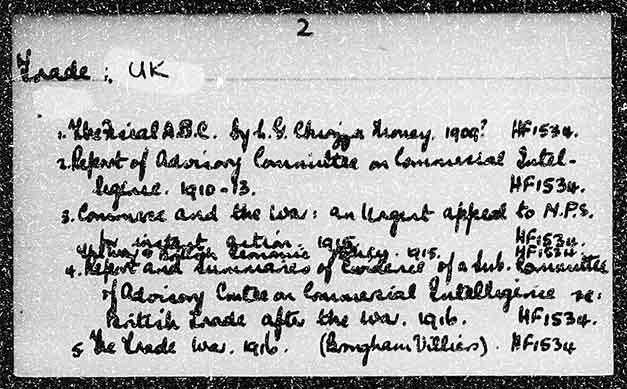 2
Trade : UK
1. The Fiscal A.B.C. by L. G. Chiozza Money. 1909? HF1534.
2. Report of Advisory Committee on Commercial Intel-
ligence. 1910-13. HF1534.
3. Commerce and the War: an Urgent appeal to M.P.s.
for instant action. 1915. HF1534.
British Economic Policy. 1915. HF1534.
4. Report and Summaries of Evidence of a Sub. Committee
of Advisory Cmttee on Commercial Intelligence re:
British Trade after the War. 1916. HF1534.
5. The Trade War. 1916. (Brougham Villiers). HF1534